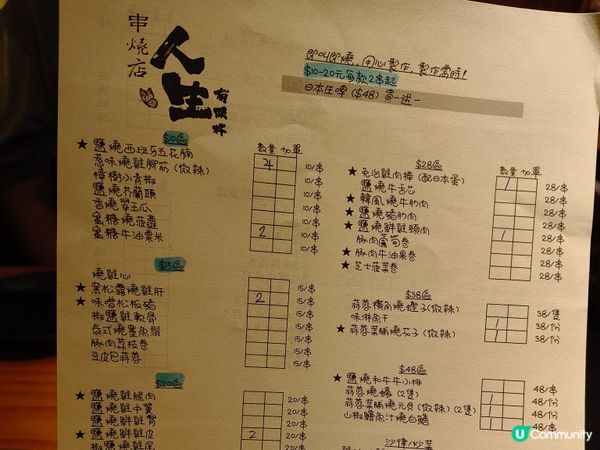 串燒店
人生
有幾杯
即叫即燒,用心製作,製作需時!
$10-20元每款2串起
日本生啤 ($48) 買一送一
$10區
數量 加單
★ 鹽燒西班牙五花腩 10/串
惹味燒雞腳筋 (微辣) 4 10/串
樟樹小青椒 10/串
鹽燒芥蘭頭 10/串
香燒翠玉瓜 10/串
蜜糖燒菠蘿 10/串
★ 蜜糖牛油粟米 2 10/串
$15區
燒雞心 15/串
★ 黑松露燒雞肝 15/串
★ 味噌松板豬 2 15/串
椒鹽雞軟骨 15/串
泰式燒墨魚鬚 15/串
豚肉荔枝卷 15/串
豆皮包蒜蓉 15/串
$20區
★ 鹽燒雞腿肉 20/串
鹽燒雞中翼 20/串
★ 鹽燒鮮雞腎 20/串
★ 鹽燒鮮雞皮 2 20/串
椒鹽燒雞尾
$28區
數量 加單
★ 免治雞肉棒 (配日本蛋) 1 28/串
鹽燒牛舌芯 28/串
★ 韓風燒牛肋肉 28/串
★ 鹽燒豬肋肉 28/串
★ 鹽燒鮮雞頸肉 1 28/串
豚肉蘆筍卷 28/串
★ 豚肉牛油果卷 28/串
★ 芝士菠菜卷 28/串
$38區
蒜蓉燒蟶子 (微辣) 38/隻
味淋魚干 1 38/份
★ 蒜蓉菜脯燒茄子 (微辣) 1 38/份
$48區
★ 鹽燒和牛牛小排 48/串
蒜蓉燒蠔 (2隻) 1 48/份
蒜蓉菜脯燒元貝 (微辣) (2隻) 1 48/份
山椒鰻魚汁燒白鱔 48/串
沙律/炒菜
U Community